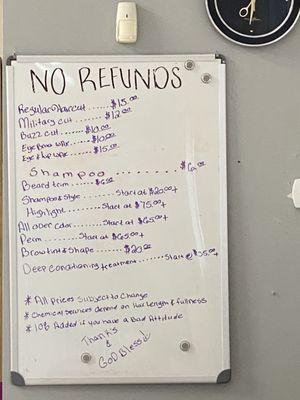 NO REFUNDS
Regular Haircut ...... $15.00
Military cut ..... $12.00
Buzz cut ..... $10.00
Eye Brow wax ..... $10.00
Eye & Lip wax ..... $15.00
Shampoo ........... $6.00
Beard trim ..... $6.00
Shampoo & Style ........ Start at $20.00+
Highlight ........ Start at $75.00+
All over color ....... Start at $65.00+
Perm ....... Start at $65.00+
Brow tint & Shape ...... $20.00
Deep conditioning treatment ........ Start @ $35.00+
* All Prices Subject to Change
* Chemical Services depend on Hair Length & fullness
* 10% Added if you have a Bad Attitude
Thanks
&
GOD Bless!